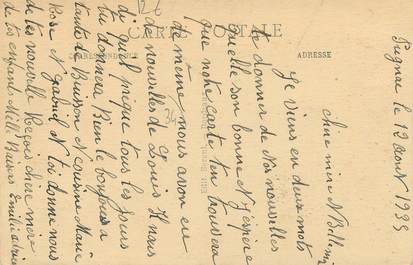 CARTE POSTALE
CORRESPONDANCE
ADRESSE
Pugnac le 12 Aout 1933
chère mère
Je viens en deux mots
te donner de Nos nouvelles
quelle son bonne et J'espère
que notre carte ten trouvera
de même nous avon eu
de nouvelles de Louis Il nous
di qu'il pique tous les jours
tu donnera Bien le bonjour a
tante de Buisson et cousine Marie
Rose et Gabriel et toi donne nous
de tes nouvelle Reçois chère mère
de tes enfants Mille Baisers Emilie